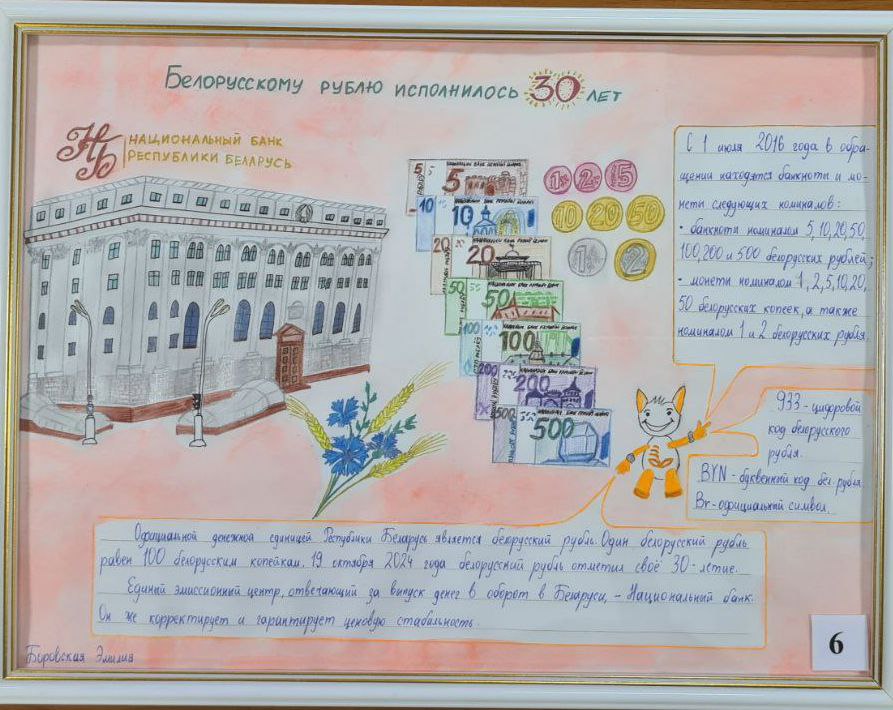 Белорусскому рублю исполнилось 30 лет
НБ
НАЦИОНАЛЬНЫЙ БАНК
РЕСПУБЛИКИ БЕЛАРУСЬ
5
5
10
10
20
20
50
50
100
100
200
200
500
500
1к 2к 5
10 20 50
1 2
С 1 июля 2016 года в обра-
щении находятся банкноты и мо-
неты следующих номиналов:
- банкноты номиналом 5, 10, 20, 50,
100, 200 и 500 белорусских рублей;
- монеты номиналом 1, 2, 5, 10, 20,
50 белорусских копеек, а также
номиналом 1 и 2 белорусских рубля.
933 - цифровой
код белорусского
рубля.
BYN - буквенный код бел. рубля
Br - официальный символ
Официальной денежной единицей Республики Беларусь является белорусский рубль. Один белорусский рубль
равен 100 белорусским копейкам. 19 октября 2024 года белорусский рубль отметил своё 30-летие.
Единый эмиссионный центр, отвечающий за выпуск денег в оборот в Беларуси, - Национальный банк.
Он же корректирует и гарантирует ценовую стабильность.
Боровская Эмилия
6